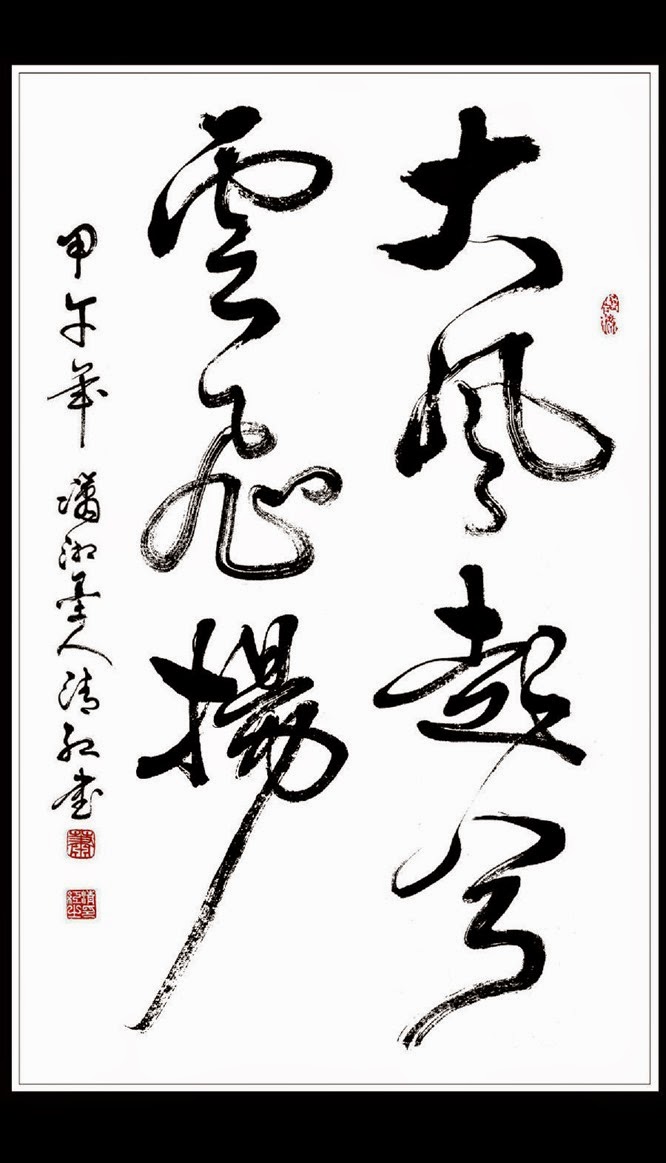 大風起兮
雲飛揚
甲午年 瀟湘墨人清红书